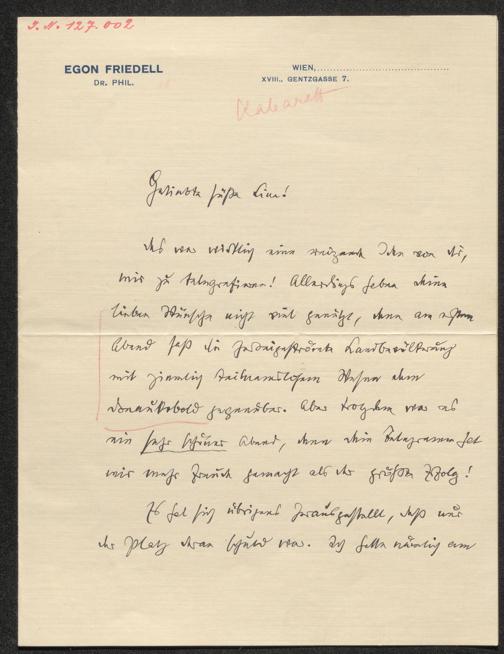 J.N. 127.002
EGON FRIEDELL
DR. PHIL.
WIEN,
XVIII., GENTZGASSE 7.
Kabarett
Geliebte süße Lina!
das war wirklich eine reizende Idee von dir,
mir zu telegrafieren! Allerdings haben deine
lieben Wünsche nicht viel genützt, denn am ersten
Abend saß die Landbevölkerung
mit ziemlich teilnamslosem Wesen dem
donaukobold gegenüber. Aber trotzdem war es
ein sehr schöner Abend, denn dein Telegramm hat
mir mehr Freude gemacht als der größte Erfolg!
Es hat sich übrigens herausgestellt, daß nur
der Platz daran schuld war. Ich hatte nämlich am